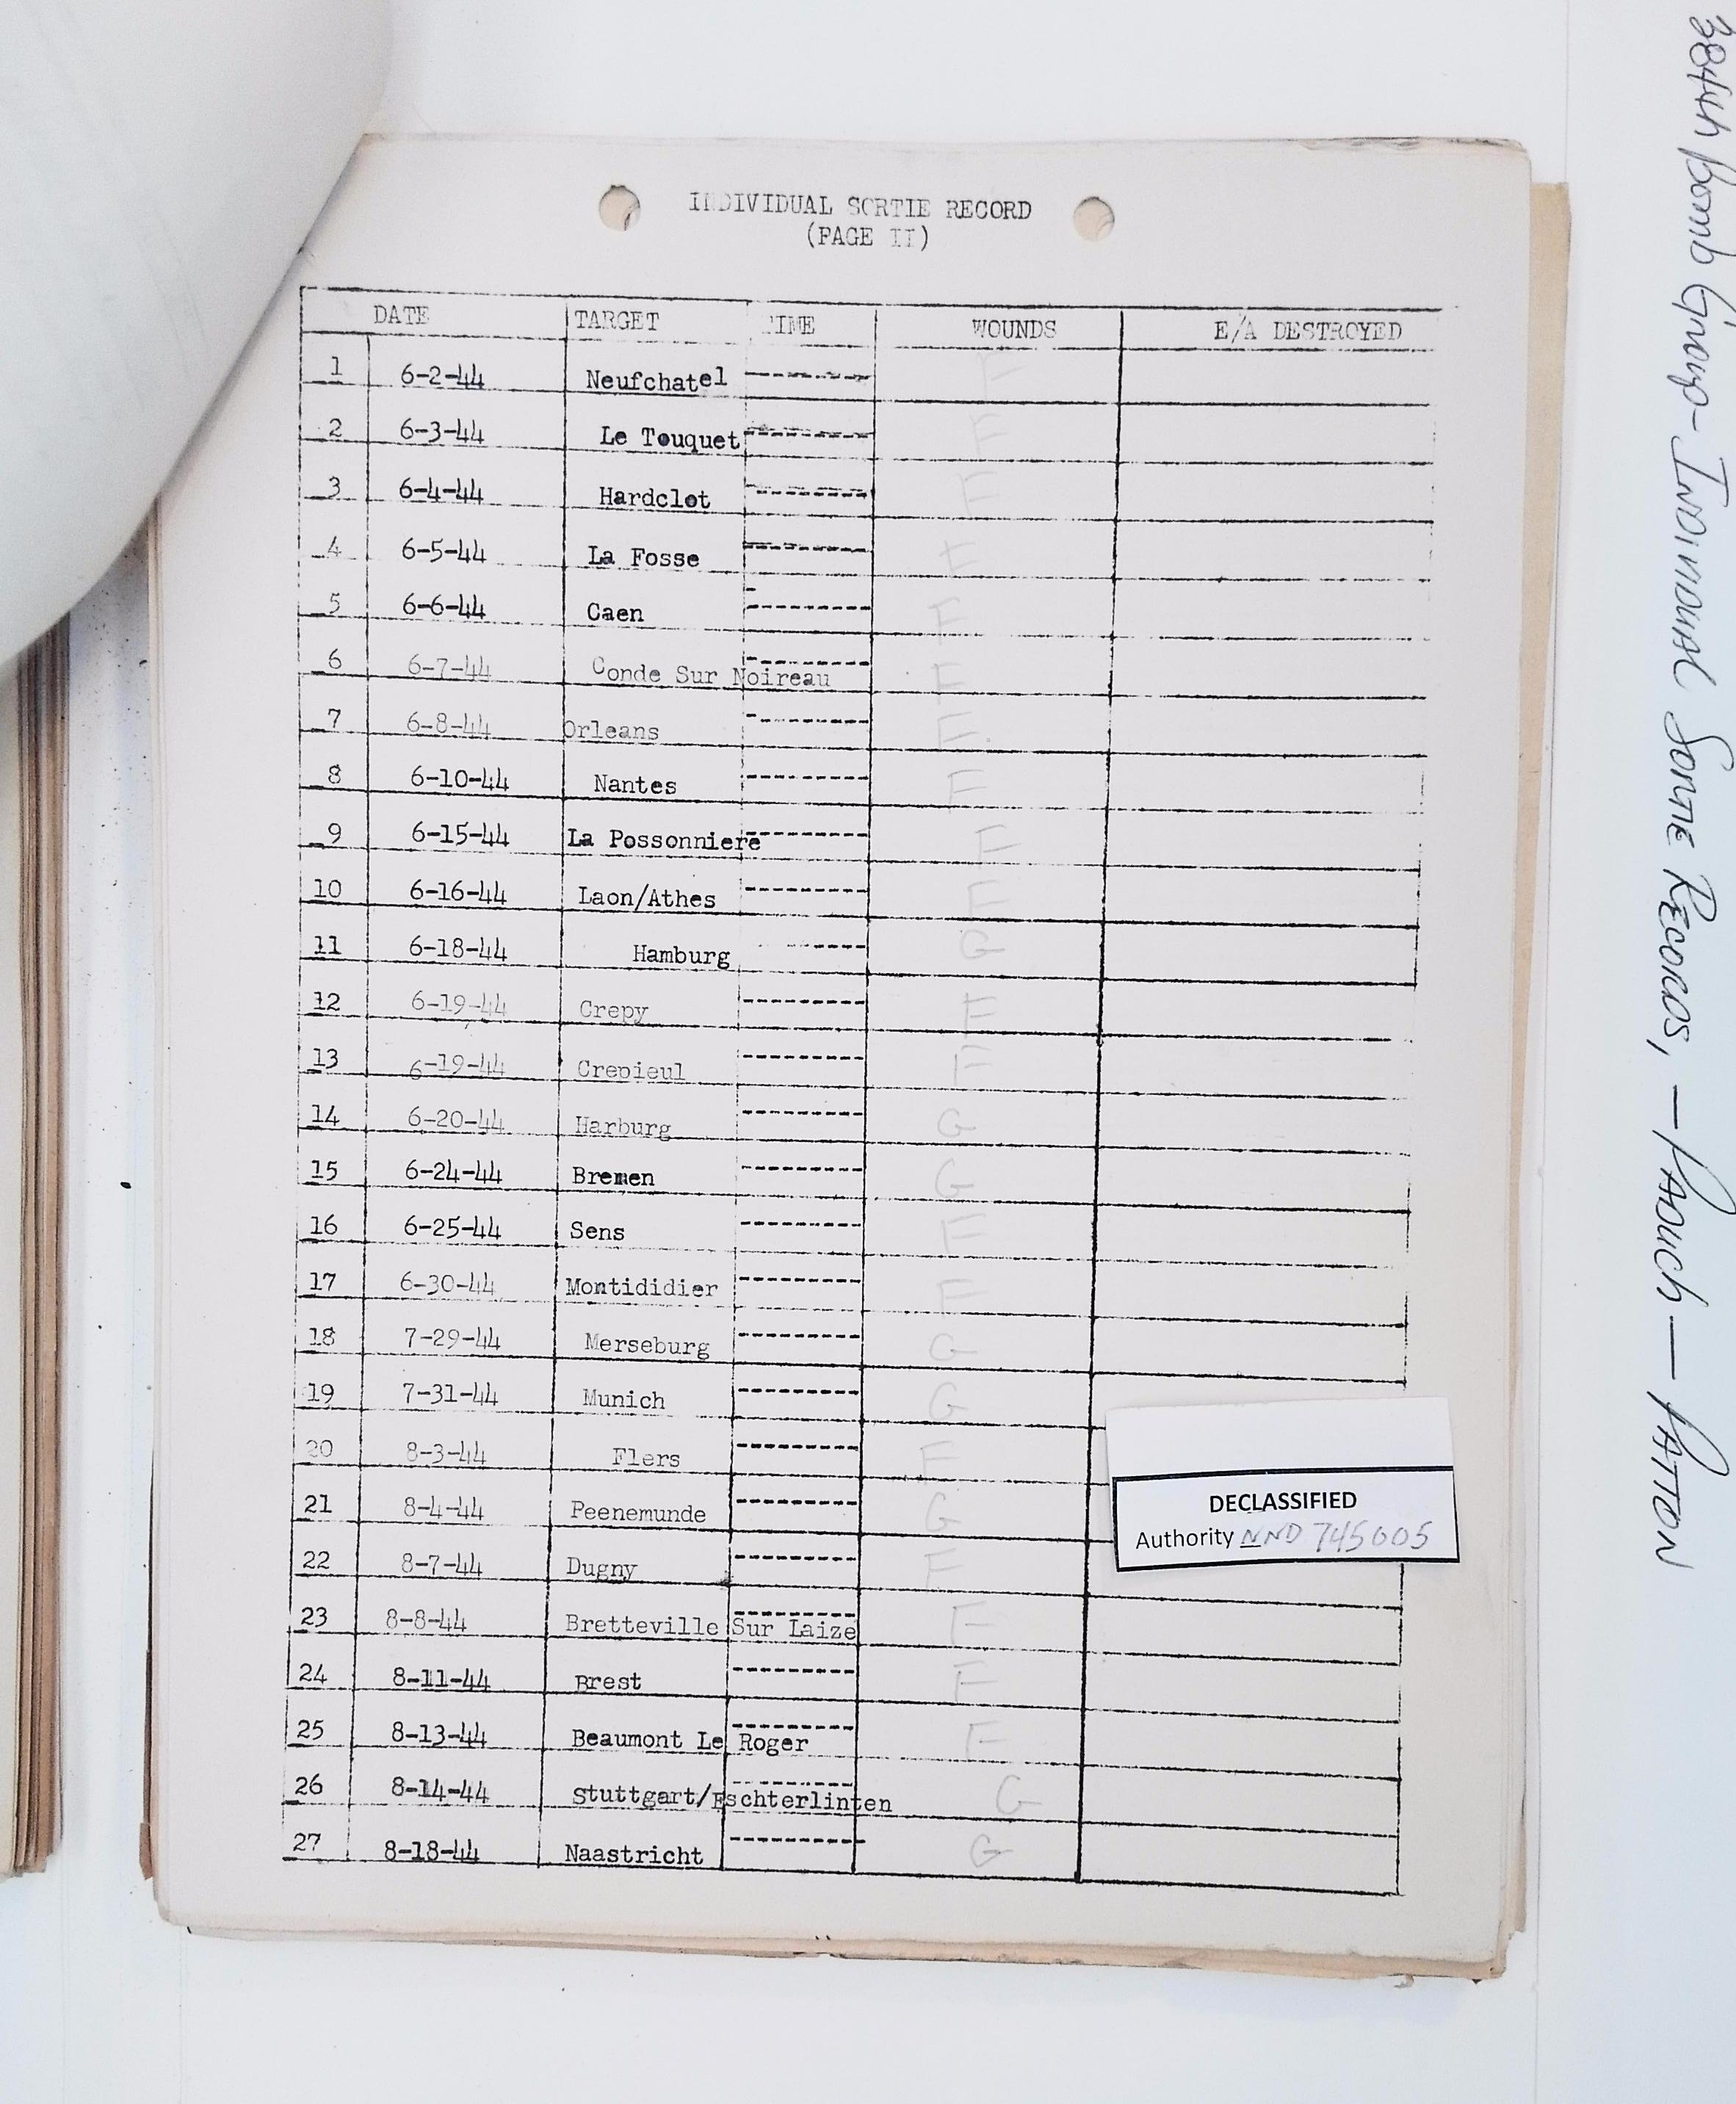 INDIVIDUAL SORTIE RECORD
(PAGE II)
DATE TARGET TIME WOUNDS E/A DESTROYED
1 6-2-44 Neufchatel --------- F
2 6-3-44 Le Touquet --------- F
3 6-4-44 Hardclot --------- F
4 6-5-44 La Fosse --------- F
5 6-6-44 Caen --------- F
6 6-7-44 Conde Sur Noireau --------- F
7 6-8-44 Orleans --------- F
8 6-10-44 Nantes --------- F
9 6-15-44 La Possonniere --------- F
10 6-16-44 Laon/Athes --------- F
11 6-18-44 Hamburg --------- G
12 6-19-44 Crepy --------- F
13 6-19-44 Crepieul --------- F
14 6-20-44 Harburg --------- G
15 6-24-44 Bremen --------- G
16 6-25-44 Sens --------- F
17 6-30-44 Montididier --------- F
18 7-29-44 Merseburg --------- G
19 7-31-44 Munich --------- G
20 8-3-44 Flers --------- F
21 8-4-44 Peenemunde --------- G
22 8-7-44 Dugny --------- F
23 8-8-44 Bretteville Sur Laize --------- F
24 8-11-44 Brest --------- F
25 8-13-44 Beaumont Le Roger --------- F
26 8-14-44 Stuttgart/Eschterlinten --------- G
27 8-18-44 Naastricht --------- G
DECLASSIFIED
Authority NND 745005
384th Bomb Group - Individual Sortie Records, - Paduch - Patton